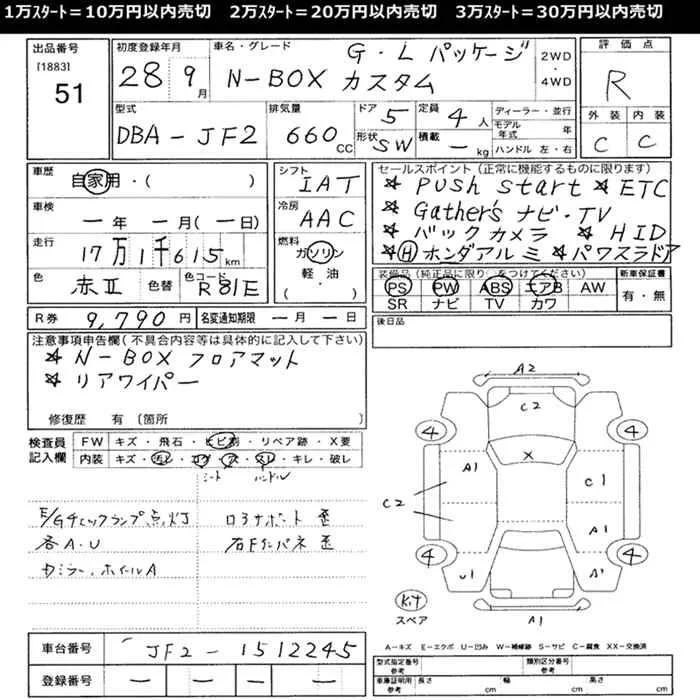 1万ｽﾀｰﾄ＝10万円以内売切　2万ｽﾀｰﾄ＝20万円以内売切　3万ｽﾀｰﾄ＝30万円以内売切
出品番号
[1883]
51
初度登録年月
28 9月
車名・グレード
G・L パッケージ
N-BOX カスタム
2WD
・
4WD
評価点
R
外装 内装
C C
型式
DBA-JF2
排気量
660 CC
ドア 5
形状 SW
定員 4人
積載 ー kg
ディーラー・並行
モデル年式 年
ハンドル 左・右
車歴
自家用・( )
車検
ー年 ー月(ー日)
走行
17万1千615km
色
赤II
色替
色コード
R81E
シフト
IAT
冷房
AAC
燃料
ガソリン
軽・油
( )
セールスポイント(正常に機能するものに限ります)
☆ PUSH start ☆ ETC
☆ Gather's ナビ・TV
☆ バックカメラ ☆ HID
☆ Ⓗホンダアルミ ☆ パワスラドア
装備品(純正品に限り○をつけてください)
PS PW ABS エアB AW
SR ナビ TV カワ
新車保証書
有・無
R券 9,790円 名変通知期限 ー月ー日
後日品
注意事項申告欄(不具合内容等は具体的に記入して下さい)
☆ N-BOX フロアマット
☆ リアワイパー
修復歴 有 (箇所 )
検査員
記入欄
FW キズ・飛石・ヒビ割・リペア跡・X要
内装 キズ・汚レ・コゲ・穴・スレ・キレ・破レ
シート ハンドル
E/Gチェックランプ点灯
各A.U
カミラー、ホイールA
ロアサポート 歪
右Fインパネ 歪
A2
C2
4
4
X
A1
C1
C2
A1
4
4
U1
A1
Kit
スペア
A1
車台番号 JF2-1512245
登録番号 ー ー ー
A-キズ E-エクボ U-凹み W-補修跡 S-サビ C-腐食 XX-交換済
型式指定番号
参考
類別区分番号
参考
車庫証明用
参考
長さ cm
幅 cm
高さ cm